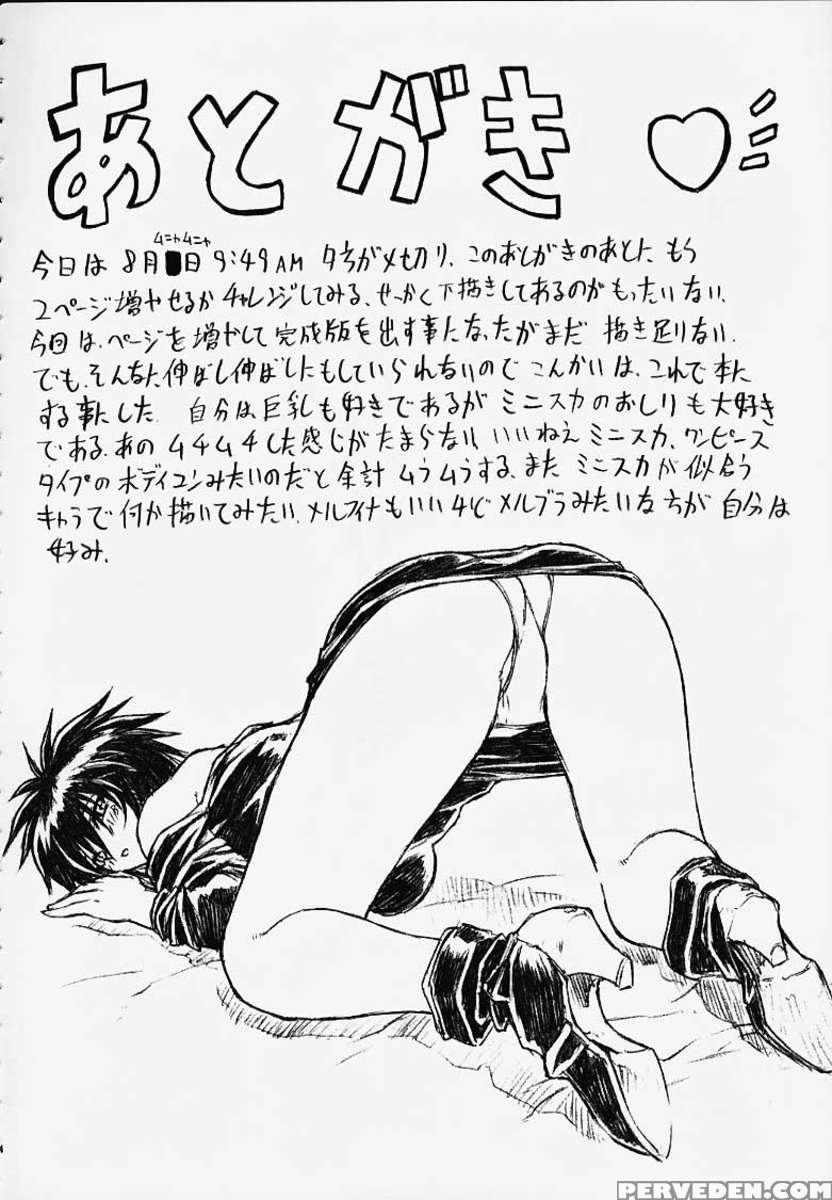 あとがき♡
ムニャムニャ
今日は 8月 日 9:49AM 夕方が〆切り、このあとがきのあとに もう
2ページ増やせるか チャレンジしてみる、せっかく下描きしてあるのがもったいない、
今回は、ページを増やして完成版を出す事になったがまだ 描き足りない、
でも、そんなに伸ばし伸ばしにもしていられないので こんかいは、これで本に
する事にした、 自分は巨乳も好きであるが ミニスカのおしりも大好き
である、あの ムチムチした感じがたまらない、いいねえミニスカ、ワンピース
タイプの ボディコンみたいのだと余計 ムラムラする、また ミニスカが似合う
キャラで何か描いてみたい、メルフィナもいいけど メルブラみたいな方が 自分は
好み、
PERVEDEN.COM